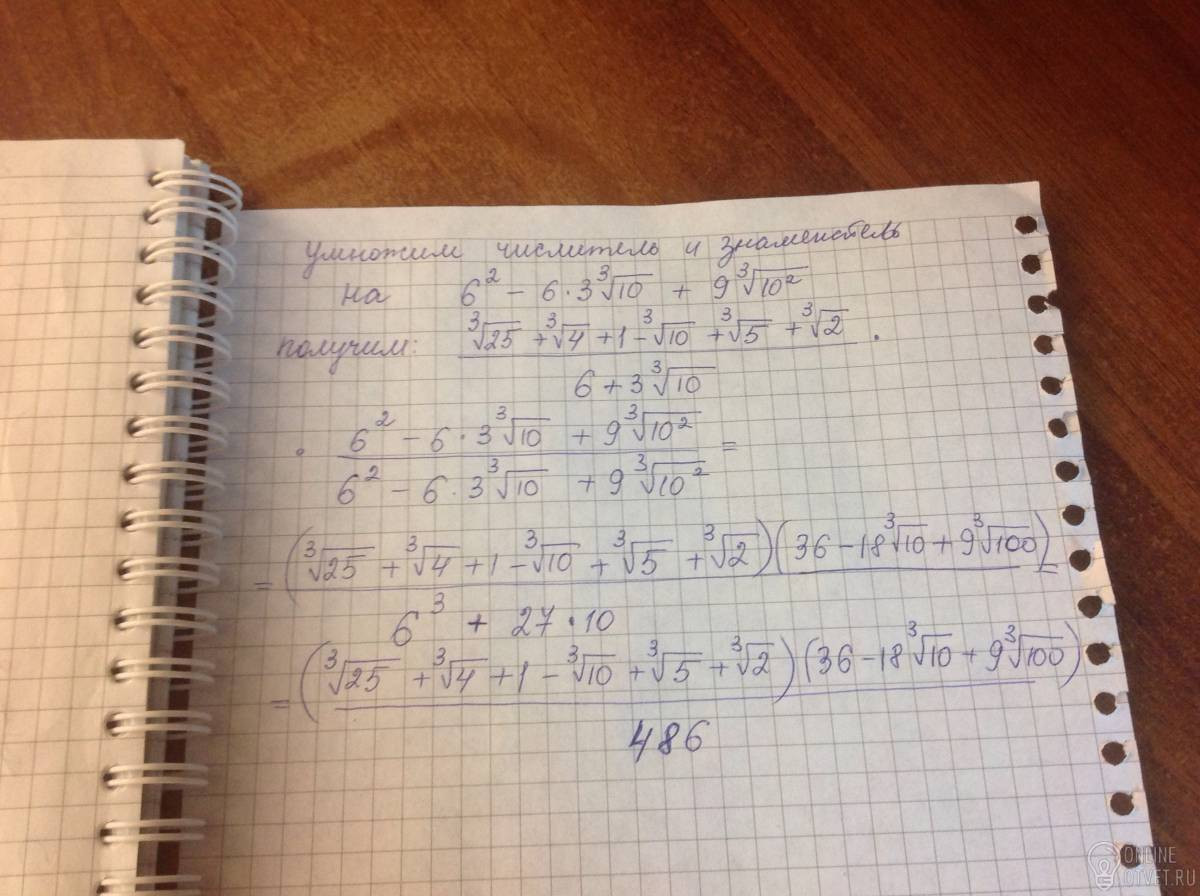 Умножим числитель и знаменатель
на 6² - 6·3∛10 + 9∛10²
получим: ∛25 + ∛4 + 1 - ∛10 + ∛5 + ∛2 ·
6 + 3∛10
· 6² - 6·3∛10 + 9∛10² =
6² - 6·3∛10 + 9∛10²
= (∛25 + ∛4 + 1 - ∛10 + ∛5 + ∛2)(36 - 18∛10 + 9∛100) =
6³ + 27·10
= (∛25 + ∛4 + 1 - ∛10 + ∛5 + ∛2)(36 - 18∛10 + 9∛100)
486
ONLINE
OTVET.RU